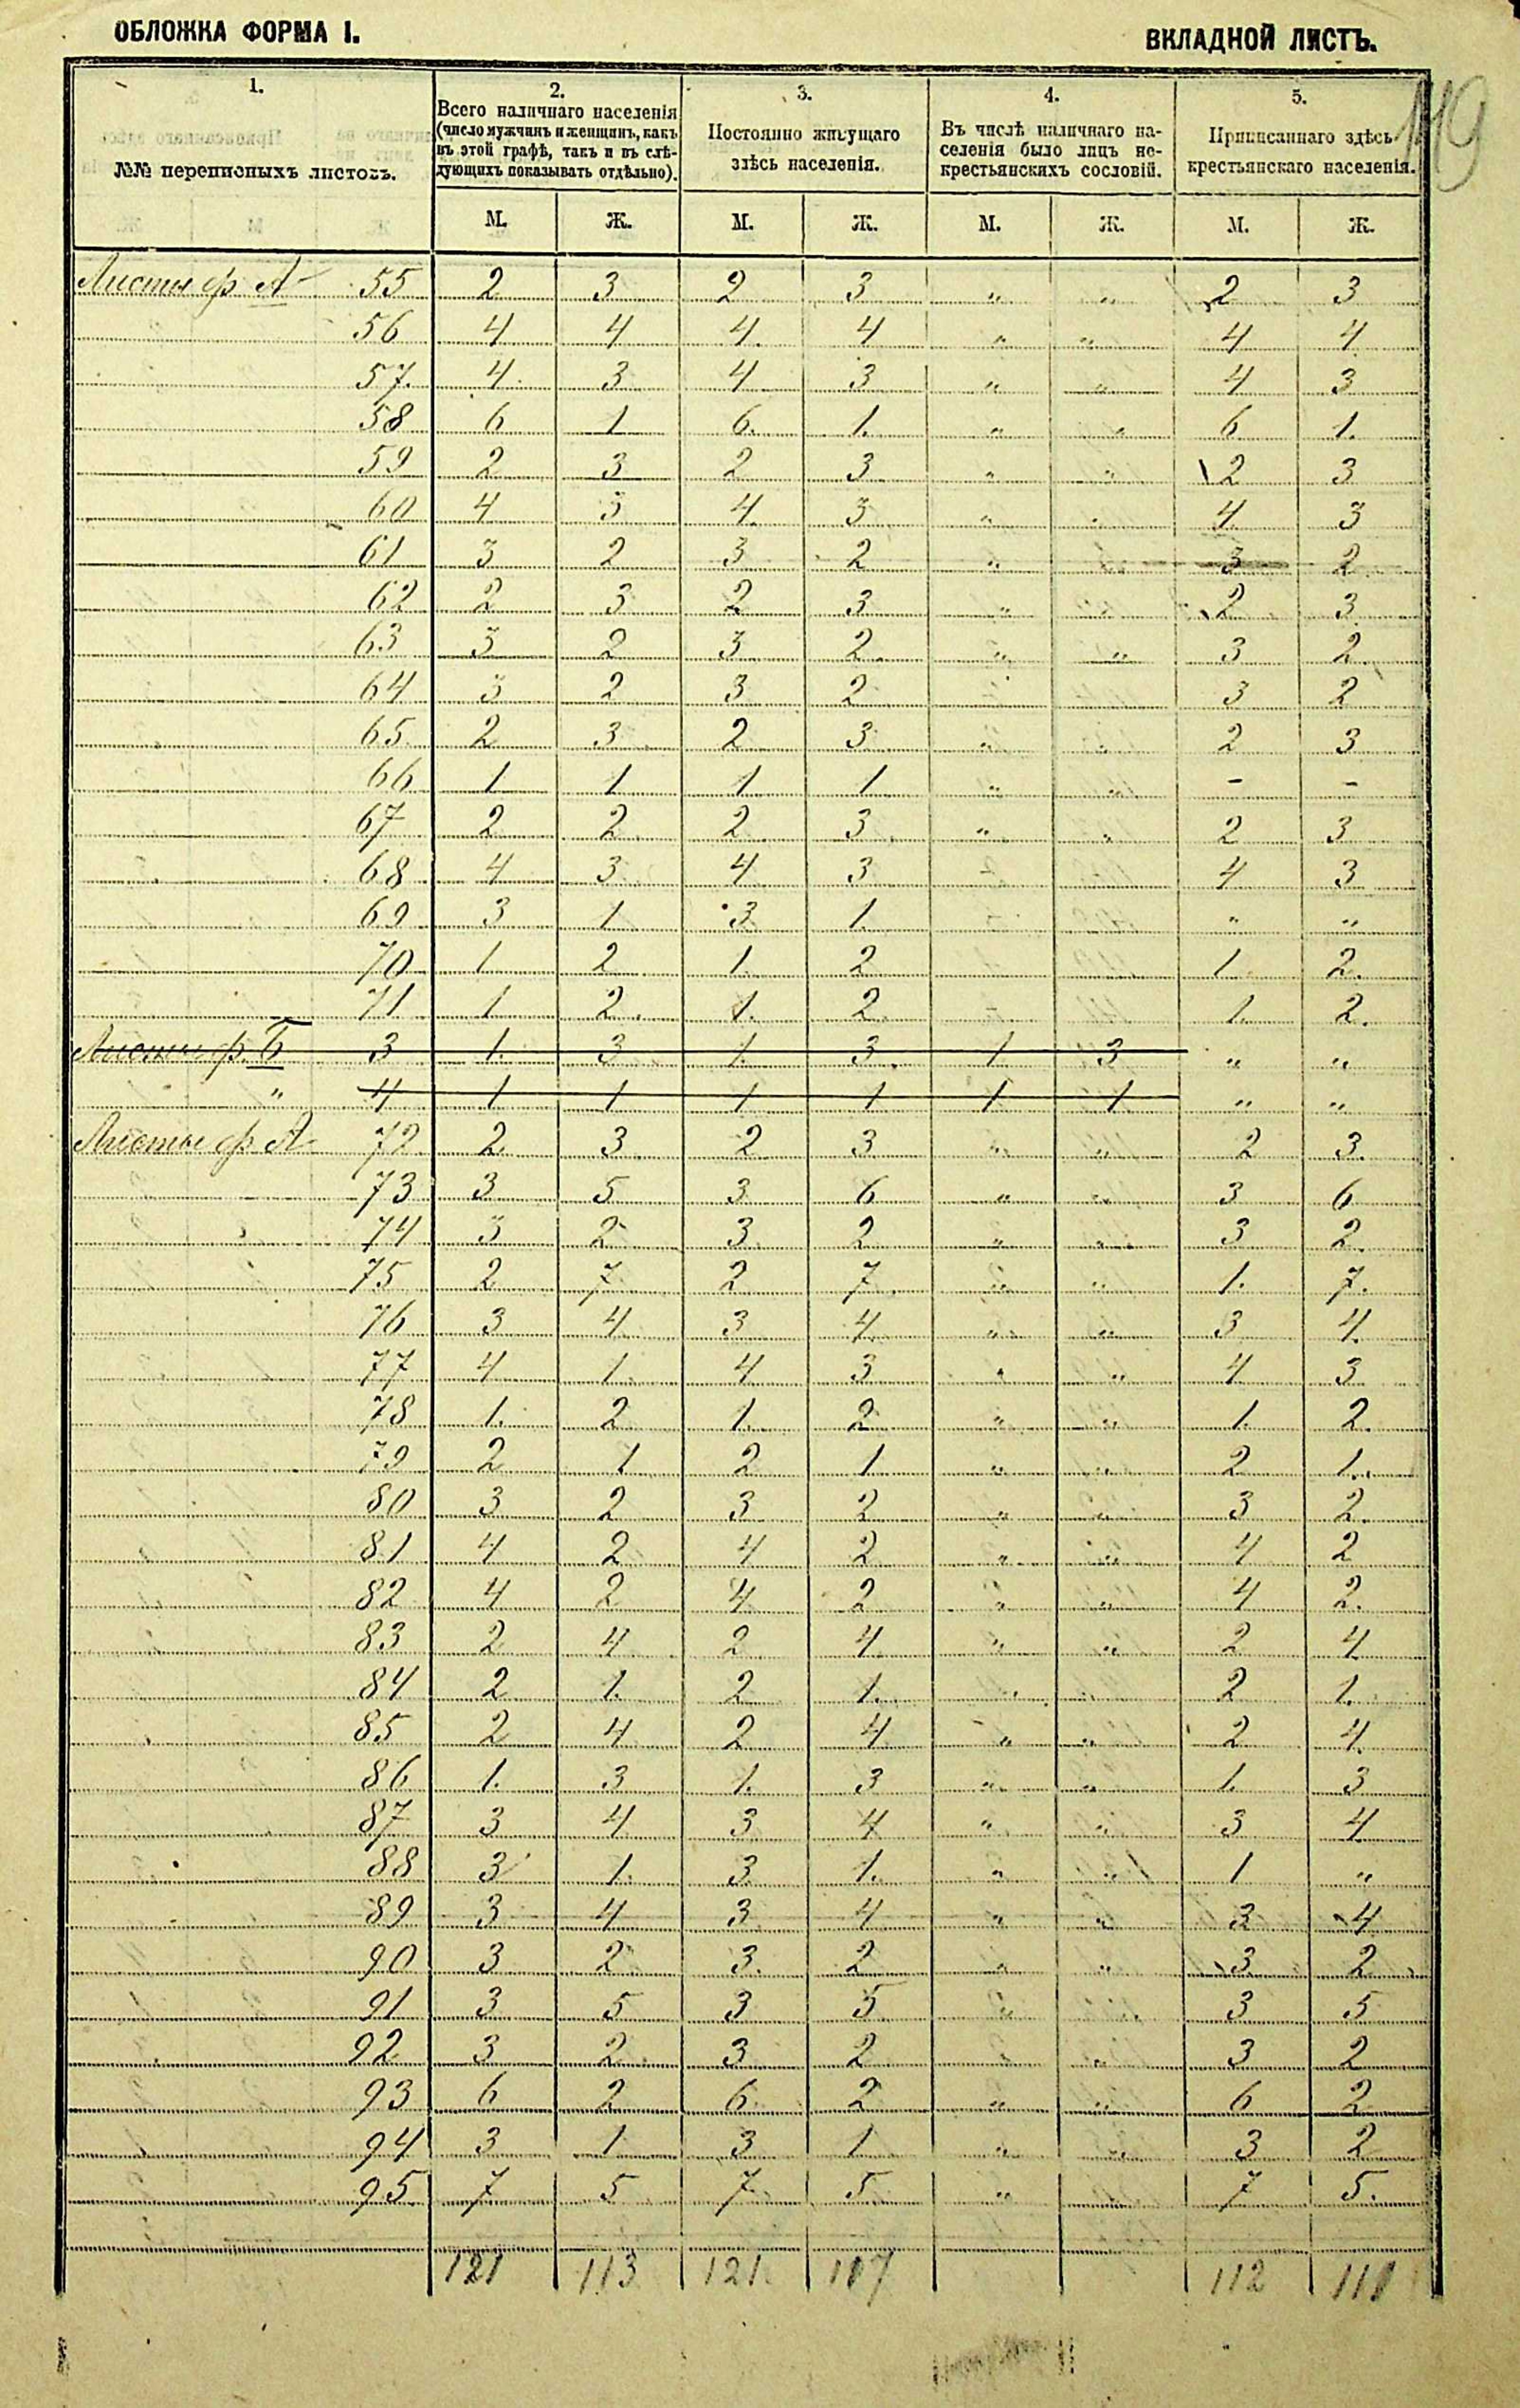 ОБЛОЖКА ФОРМА I. ВКЛАДНОЙ ЛИСТЪ.
119
1. 2. 3. 4. 5.
№№ переписныхъ листовъ.
Всего наличнаго населенія
(число мужчинъ и женщинъ, какъ
въ этой графѣ, такъ и въ слѣ-
дующихъ показывать отдѣльно).
Постоянно живущаго
здѣсь населенія.
Въ числѣ наличнаго на-
селенія было лицъ не-
крестьянскихъ сословій.
Приписаннаго здѣсь
крестьянскаго населенія.
М. Ж. М. Ж. М. Ж. М. Ж.
Листы ф. А 55 2 3 2 3 " " 2 3
56 4 4 4 4 " " 4 4
57 4 3 4 3 " " 4 3
58 6 1 6 1 " " 6 1
59 2 3 2 3 " " 2 3
60 4 3 4 3 " " 4 3
61 3 2 3 2 " " 3 2
62 2 3 2 3 " " 2 3
63 3 2 3 2 " " 3 2
64 3 2 3 2 3 2
65 2 3 2 3 " " 2 3
66 1 1 1 1 " " - -
67 2 2 2 3 " " 2 3
68 4 3 4 3 4 3
69 3 1 3 1 " "
70 1 2 1 2 1 2
71 1 2 1 2 1 2
Листы ф. Б 3 1 3 1 3 1 3 " "
" 4 1 1 1 1 1 1 " "
Листы ф. А 72 2 3 2 3 " " 2 3
73 3 5 3 6 " " 3 6
74 3 2 3 2 " " 3 2
75 2 7 2 7 " " 1 7
76 3 4 3 4 " " 3 4
77 4 1 4 3 " " 4 3
78 1 2 1 2 " " 1 2
79 2 1 2 1 " " 2 1
80 3 2 3 2 " " 3 2
81 4 2 4 2 " " 4 2
82 4 2 4 2 " " 4 2
83 2 4 2 4 " " 2 4
84 2 1 2 1 " " 2 1
85 2 4 2 4 " " 2 4
86 1 3 1 3 " " 1 3
87 3 4 3 4 " " 3 4
88 3 1 3 1 " " 1 "
89 3 4 3 4 " " 3 4
90 3 2 3 2 " " 3 2
91 3 5 3 5 " " 3 5
92 3 2 3 2 " " 3 2
93 6 2 6 2 " " 6 2
94 3 1 3 1 " " 3 2
95 7 5 7 5 " " 7 5
121 113 121 107 112 110